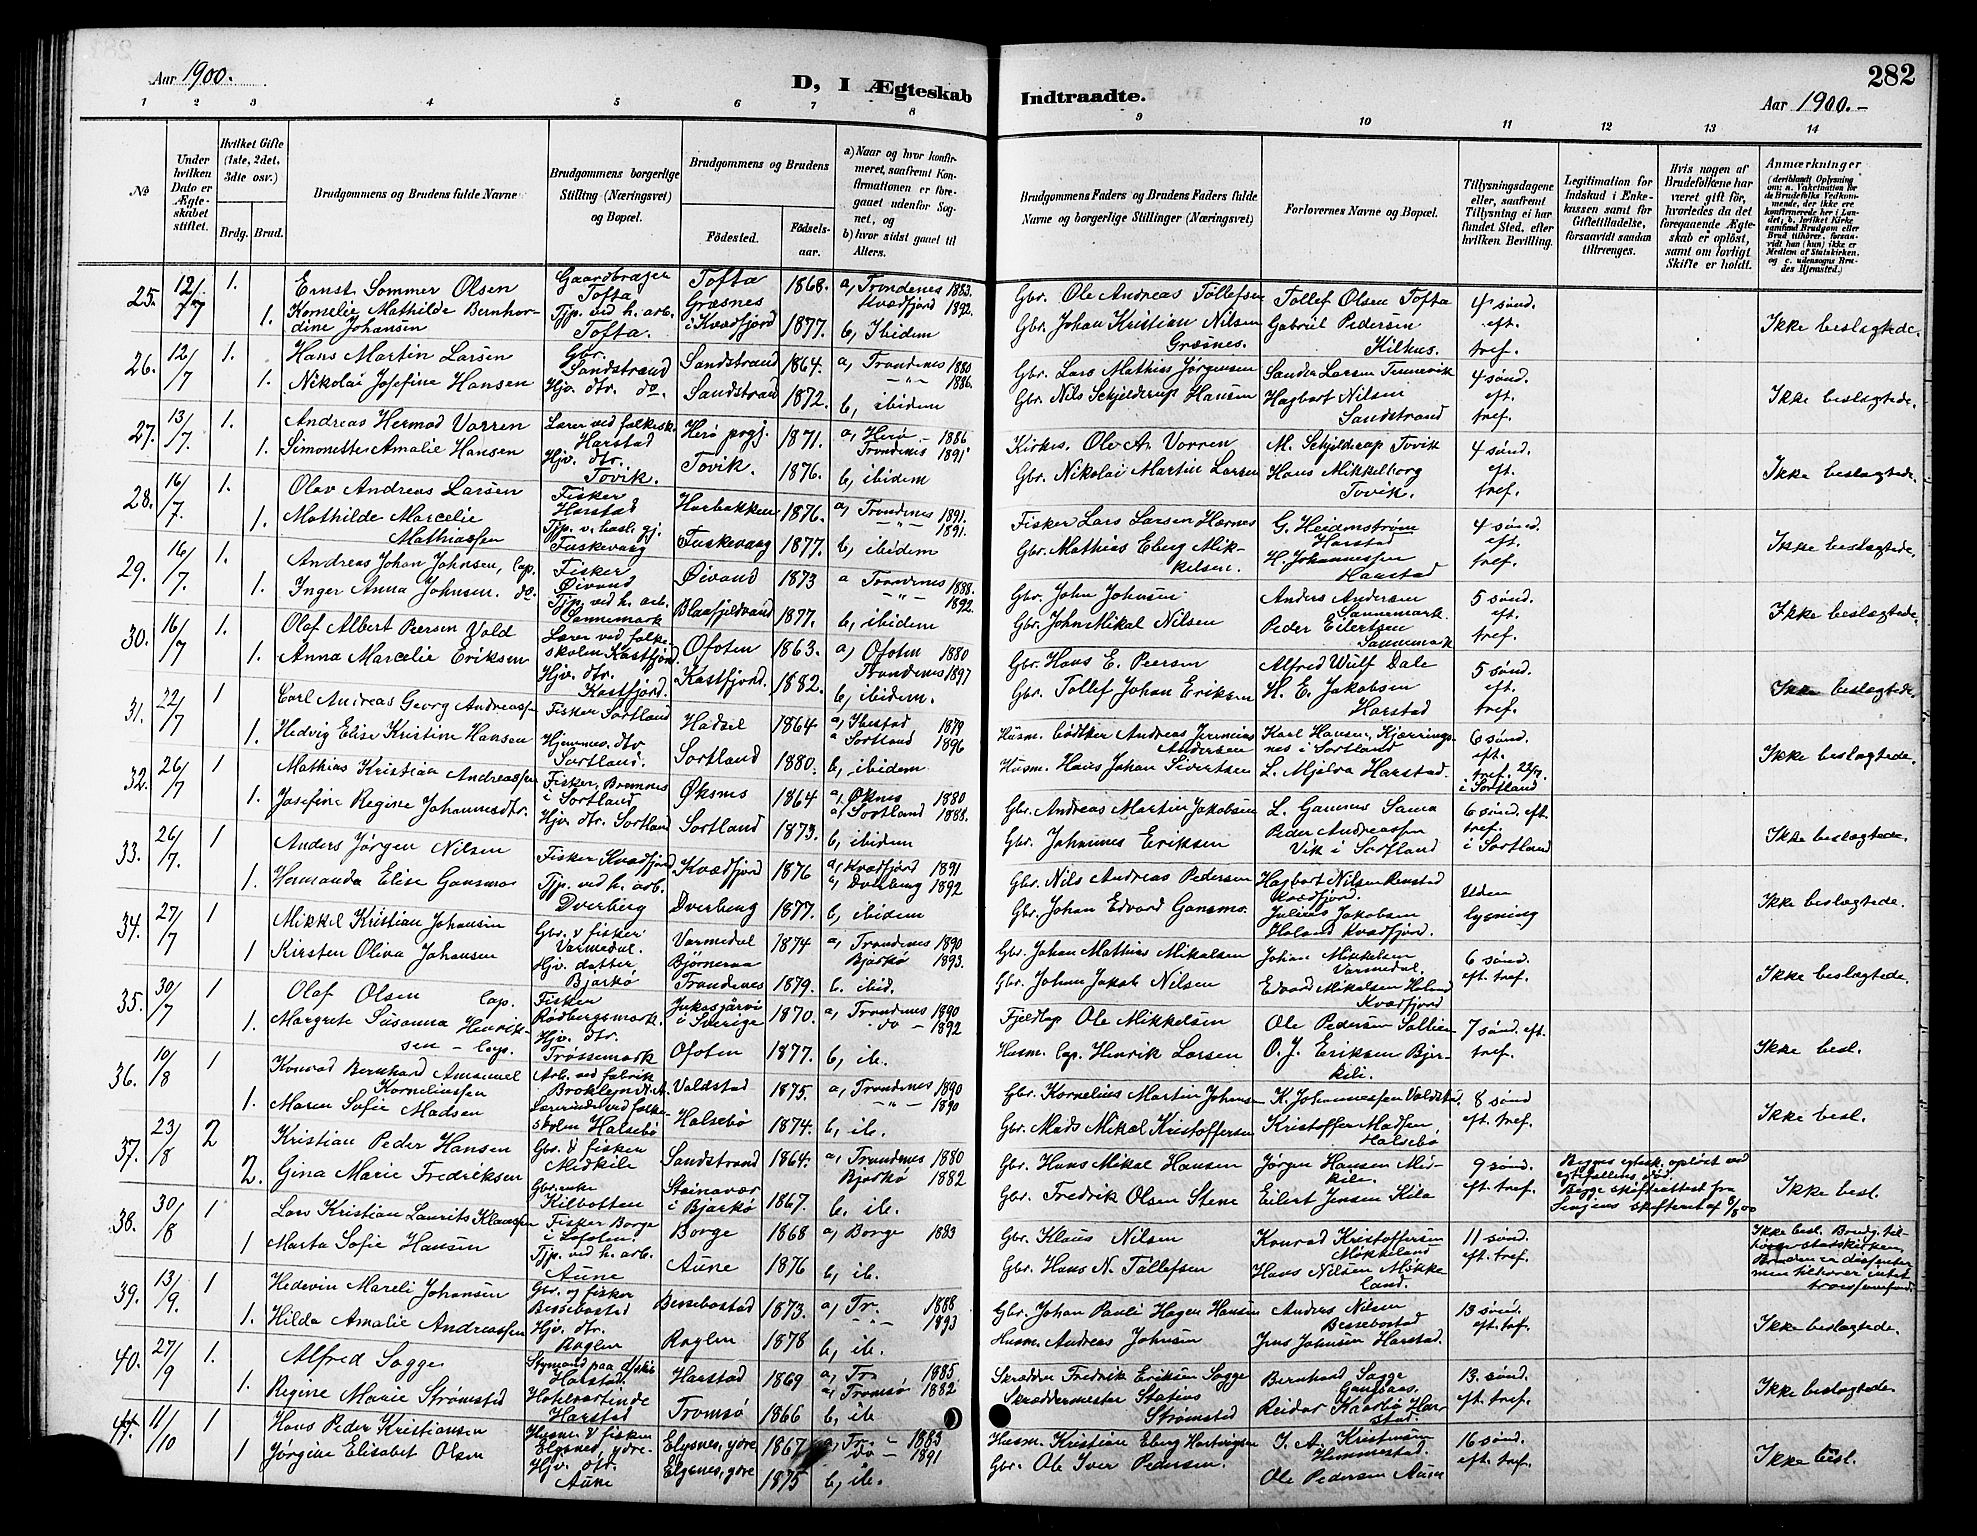 Aar 1900.
D, I Ægteskab Indtraadte.
282
Aar 1900.-
1 2 3 4 5 6 7 8 9 10 11 12 13 14
№
Under hvilken Dato er Ægteskabet stiftet.
Hvilket Gifte (1ste, 2det, 3dte osv.)
Brdg. Brud.
Brudgommens og Brudens fulde Navne
Brudgommens borgerlige Stilling (Næringsvei) og Bopæl.
Brudgommens og Brudens
Födested. Födselsaar.
a) Naar og hvor konfirmeret, saafremt Konfirmationen er foregaaet udenfor Sognet, og
b) hvor sidst gaaet til Alters.
Brudgommens Faders og Brudens Faders fulde Navne og borgerlige Stillinger (Næringsvei)
Forlovernes Navne og Bopæl.
Tillysningsdagene eller, saafremt Tillysning ei har fundet Sted, efter hvilken Bevilling.
Legitimation for Indskud i Enkekassen samt for Giftetilladelse, forsaavidt saadan tiltrænges.
Hvis nogen af Brudefolkene har været gift för, hvorledes da det foregaaende Ægteskab er oplöst, samt om lovligt Skifte er holdt.
Anmærkninger
25. 12/7 1. Ernst Sommer Olsen Gaardbruger Tofta Tofta 1868. a, Trondenes 1883. Gbr. Ole Andreas Tollefsen Tollef Olsen Tofta 4 sønd.
1. Kornelie Mathilde Bernhardine Johansen Tjp. ved h. arb. Tofta. Græsnes i Kvædfjord 1877. Kvædfjord 1892. b, Ibidem Gbr. Johan Kristian Nilsen Græsnes. Gabriel Pedersen Kilhus. eft. tref. Ikke beslægtede.
26. 12/7 1. Hans Martin Larsen Gbr. Sandstrand Sandstrand 1864. a, Trondenes 1880 Gbr. Lars Mathias Jørgensen Sander Larsen Tennevik 4 sønd.
1. Nikolai Josefine Hansen Hjv. dtr. do. Sandstrand 1872. -"- 1886. b, ibidem Gbr. Nils Schjelderup Hansen Hagbart Nilsen Sandstrand eft. tref. Ikke beslægtede.
27. 13/7 1. Andreas Hermod Vorren Lærer ved folkesk. Harstad Herø prgj. 1871. a, Herø - 1886 Kirkes. Ole A. Vorren M. Schjelderup Tovik 4 sønd.
1. Simonette Amalie Hansen Hjv. dtr. Tovik. Tovik. 1876. Trondenes 1891 b, ibidem Gbr. Nikolai Martin Larsen Hans Mikkelborg Tovik. eft. tref. Ikke beslægtede.
28. 16/7. 1. Olav Andreas Larsen Fisker Harstad Harbakken 1876. a, Trondenes 1891. Fisker Lars Larsen Hærnes G. Heidmstrøm Harstad 4 sønd.
1. Mathilde Marcelie Mathiassen Tjp. v. husl. gj. Fuskevaag Fuskevaag 1877. -"- 1891. b, ibidem Gbr. Mathias Eberg Mikkelsen. H. Johannessen Harstad eft. tref. Ikke beslægtede.
29. 16/7. 1. Andreas Johan Johnsen, lap. Fisker Øivand Øivand 1873 a Trondenes 1888. Gbr. John Johnsen Anders Andersen Sannemark. 5 sønd.
1. Inger Anna Johnsen. do. Tjp. ved h. arb. Sannemark Blaafjeldvand 1877. -"- 1892. b, ibidem Gbr. John Mikal Nilsen Peder Eilertsen Sannemark eft. tref. Ikke beslægtede.
30. 16/7 1. Olaf Albert Peersen Vold Lærer ved folkeskolen Kastfjord. Ofoten 1863. a) Ofoten 1880 Gbr. Hans E. Peersen Alfred Wulf Dale 5 sønd.
1. Anna Marcelie Eriksen Hjv. dtr. Kastfjord. Kastfjord. 1882. Trondenes 1897 b, ibidem. Gbr. Tollef Johan Eriksen H. E. Jakobsen Harstad eft. tref. Ikke beslægtede.
31. 22/7 1 Carl Andreas Georg Andreassen Fisker Sortland Hadsel 1864 a, Ibestad 1879 Husm. bødtker Andreas Jeremias Andersen Karl Hansen, Kjærringnes i Sortland 6 sønd.
1. Hedvig Elise Kristine Hansen Hjemmev. dtr. Sortland. Sortland 1880. a Sortland 1896 b, ibidem Husm. Hans Johan Sivertsen L. Mjelva Harstad. eft. tref. 22/7. i Sortland Ikke beslægtede.
32. 26/7 1 Mathias Kristian Andreassen Fisker, Bremnes i Sortland Øksnes 1864 a, Øksnes 1880 Gbr. Andreas Martin Jakobsen L. Gamnes Sama 6 sønd. eft.
1. Josefine Regine Johannesdtr. Hjv. dtr. Sortland Sortland 1873. a, Sortland 1888. b, ibidem Gbr. Johannes Eriksen Peder Andreassen Vik i Sortland tref. i Sortland Ikke beslægtede.
33. 26/7. 1 Anders Jørgen Nilsen Fisker Kvædfjord Kvædfjord 1876 a, Kvædfjord 1891 Gbr. Nils Andreas Pedersen Hagbart Nilsen Renstad Kvædfjord. Uden
1. Hermanda Elise Gansmo Tjp. ved h. arb. Dverberg Dverberg 1877. a, Dverberg 1892 b, ibidem Gbr. Johan Edvard Gansmo. Julius Jakobsen Holand Kvædfjord. lysning Ikke beslægtede.
34. 27/7 1 Mikkel Kristian Johansen Gbr. & fisker Varmedal. Varmedal 1874 a, Trondenes 1890 Gbr. Johan Mathias Mikalsen Johan Mikkelsen Varmedal. 6 sønd.
1 Kirsten Oliva Johansen Hjv. datter Bjarkø Bjørneraa Trondenes 1879. Bjarkø 1893. b. ibid. Gbr. Johan Jakob Nilsen Edvard Mikalsen Holand Kvædfjord eft. tref. Ikke beslægtede.
35. 30/7 1 Olaf Olsen lap. Fisker Rødbergsmark. Jukasjärvi i Sverige 1870. a, Trondenes 1890 Fjeldlap Ole Mikkelsen Ole Pedersen Sollien 7 sønd. eft.
1. Margrete Susanna Henriksen - lap. Hjv. dtr. Trøssemark Ofoten 1877. do - 1892 b, ib. Husm. lap. Henrik Larsen O. J. Eriksen Bjerkeli. tref. Ikke besl.
36. 10/8 1 Konrad Bernhard Amanuel Kornelinssen Arb. ved fabrik Broklyn N. A. Voldstad 1875. a, Trondenes 1890 Gbr. Kornelius Martin Johansen K. Johannessen Voldstad 8 sønd
1. Maren Sofie Madsen Lærerinde ved folkeskolen Halsebø Halsebø 1874. -"- 1890 b, ib. Gbr. Mads Mikal Kristoffersen Kristoffer Madsen, Halsebø eft. tref. Ikke besl.
37. 23/8 2 Kristian Peder Hansen Gbr. & fisker Midkile Sandstrand 1864. a, Trondenes 1880 Gbr. Hans Mikal Hansen Jørgen Hansen Midkile. 9 sønd. Begges egtesk. opløst ved egtefællens død.
2. Gina Marie Fredriksen Gbr. enke Kilbotten Steinavær i Bjarkø 1867. Bjarkø 1882 b. ib. Gbr. Fredrik Olsen Stene Eilert Jensen Kila eft. tref. Begge skifteattest fra Senjens skifteret af 8/8 00 Ikke besl.
38. 30/8 1 Lars Kristian Laurits Klaussen Fisker Borge i Lofoten Borge 1868 a, Borge 1883 Gbr. Klaus Nilsen Konrad Kristoffersen Møkkeland 11 sønd. Ikke besl. Brudg. tilhører statskirken,
1 Marta Sofie Hansen Tjp. ved h. arb. Aune Aune 1876 b, ib. Gbr. Hans N. Tollefsen Hans Nilsen Møkkeland. eft. tref. Bruden er dissenter men tilhører intet trossamfund.
39. 13/9. 1 Hedevin Mareli Johansen Gbr. og fisker Bessebostad Bessebostad 1873. a, Tr. 1888 Gbr. Johan Pauli Hagen Hansen Anders Nilsen Bessebostad 13 sønd.
1. Hilda Amalie Andreassen Hjv. dtr. Røglen Røglen 1878 -"- 1893 b, ib. Husm. Andreas Johnsen Jens Johnsen Harstad. eft. tref. Ikke beslægtede.
40. 27/9 1. Alfred Sogge Styrmand paa d/skib Harstad. Harstad 1869 a, Tr. 1885 Skrædder Fredrik Eriksen Sogge Bernhard Sogge Gansaas. 13. sønd.
1. Regine Marie Strømsted Hotelværtinde Harstad Tromsø 1866 a, Tromsø 1882 b, ib Skræddermester Statius Strømsted Reidar Kaarbø Harstad. eft. tref. Ikke beslægtede
41. 11/10 1 Hans Peder Kristiansen Husm. & fisker Elgsnes, ydre. Elgsnes, ydre 1867 a, Tr. 1883 Husm. Kristian Eberg Hartvigsen J. A. Kristensen Hemmestad. 16 sønd.
1 Jørgine Elisabet Olsen Hjv. dtr. Aune Elgsnes, ydre 1875 do - 1891 b, ib. Gbr. Ole Iver Pedersen. Ole Pedersen Aune eft. tref. Ikke besl.